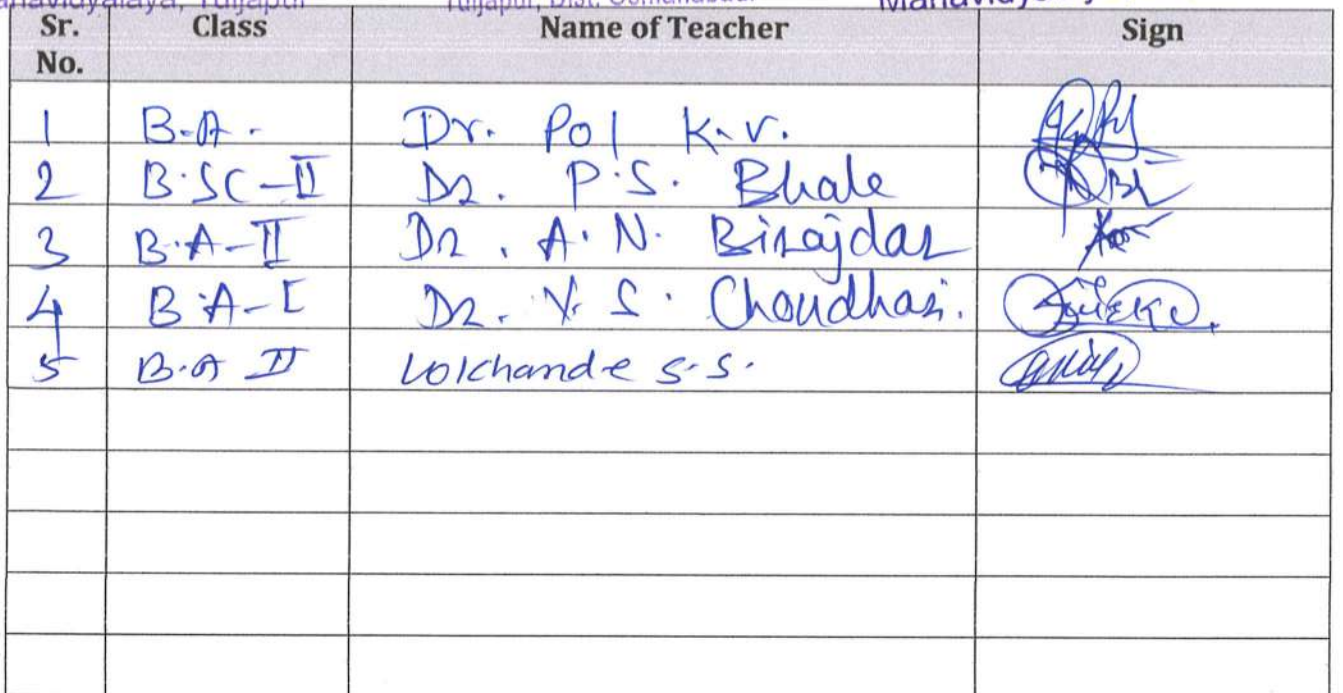 Tuljapur
Sr. No. Class Name of Teacher Sign
1 B.A. Dr. Pol K.V.
2 B.SC-II Dr. P.S. Bhale
3 B.A-II Dr. A.N. Birajdar
4 B.A-I Dr. V. S. Choudhari.
5 B.A II Lolchande S.S.